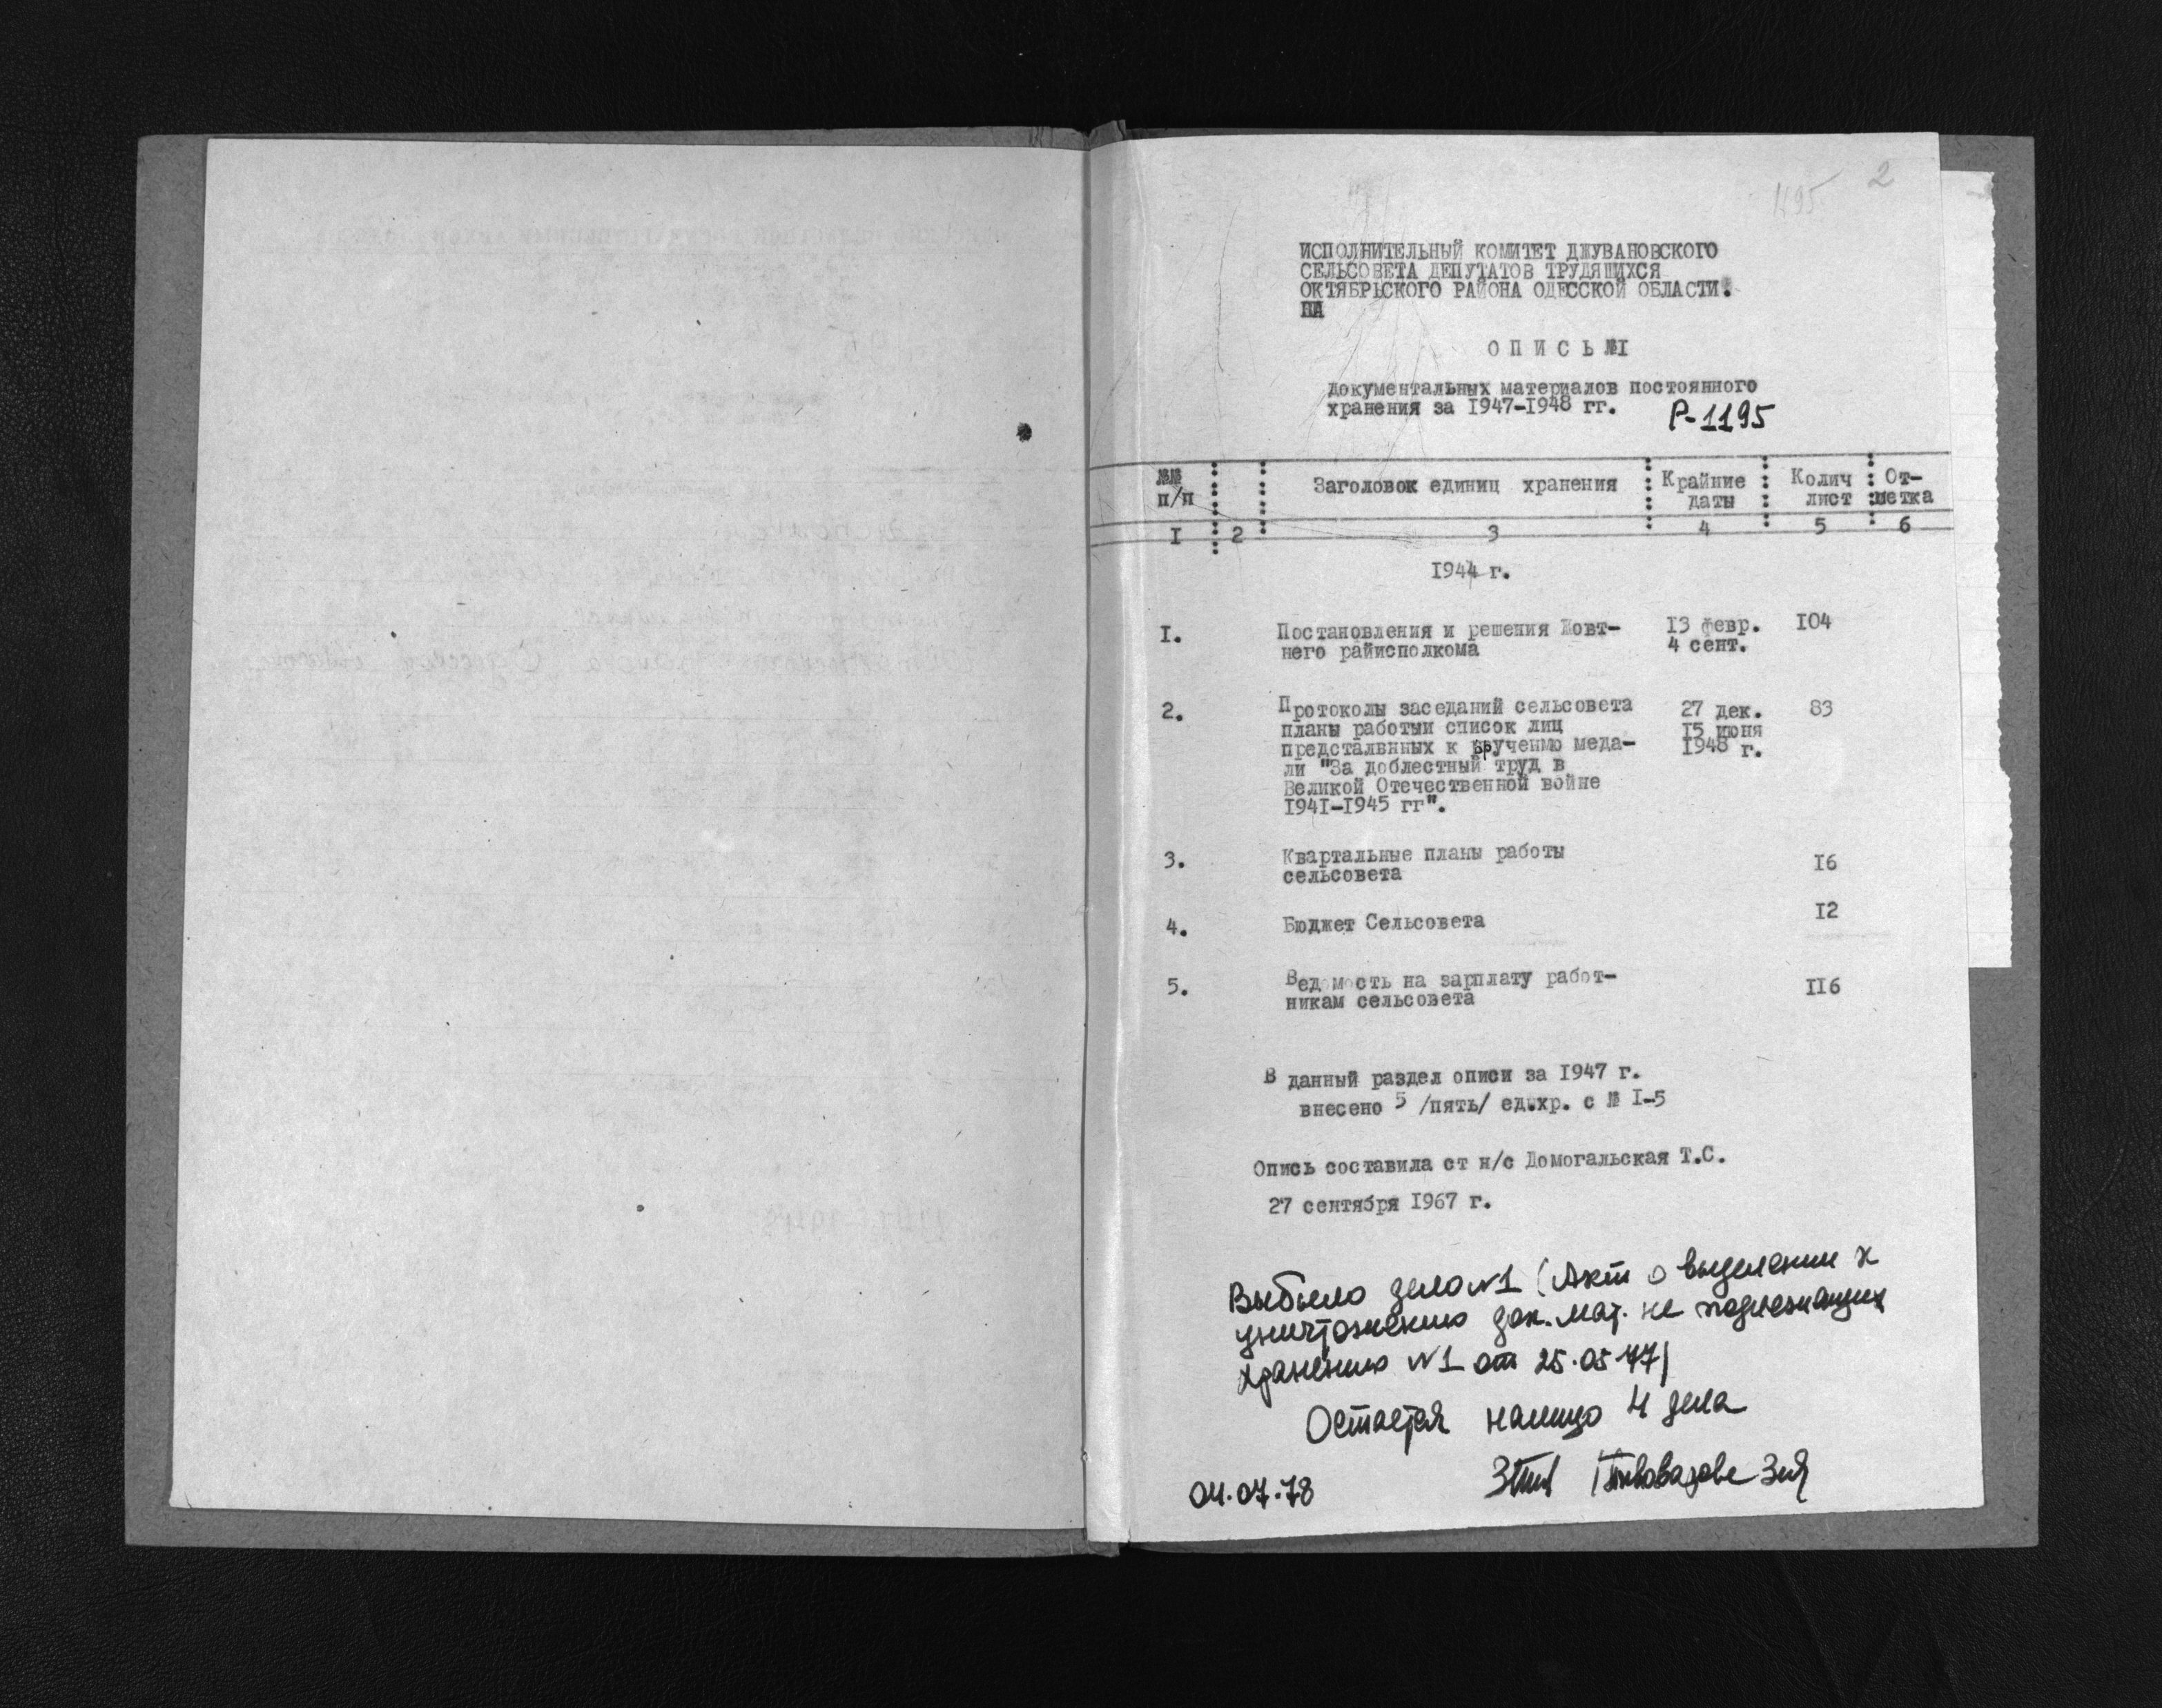 2
1195
ИСПОЛНИТЕЛЬНЫЙ КОМИТЕТ ДЖУВАНОВСКОГО
СЕЛЬСОВЕТА ДЕПУТАТОВ ТРУДЯЩИХСЯ
ОКТЯБРЬСКОГО РАЙОНА ОДЕССКОЙ ОБЛАСТИ.
О П И С Ь №I
документальных материалов постоянного
хранения за I947-I948 гг.
Р-1195
№№ п/п Заголовок единиц хранения Крайние даты Колич лист От-метка
I 2 3 4 5 6
I944 г.
I. Постановления и решения Жовт- 13 февр. I04
него райисполкома 4 сент.
2. Протоколы заседаний сельсовета 27 дек. 83
планы работыи список лиц I5 июня
предсталвнных к вручению меда- I948 г.
ли "За доблестный труд в
Великой Отечественной войне
I94I-I945 гг".
3. Квартальные планы работы I6
сельсовета
4. Бюджет Сельсовета I2
5. Ведомость на зарплату работ- II6
никам сельсовета
В данный раздел описи за I947 г.
внесено 5 /пять/ ед.хр. с № I-5
Опись составила ст н/с Домогальская Т.С.
27 сентября I967 г.
Выбыло дело №1 (Акт о выделении к
уничтожению док. мат. не подлежащих
хранению №1 от 25.05.77)
Остается налицо 4 дела
04.07.78